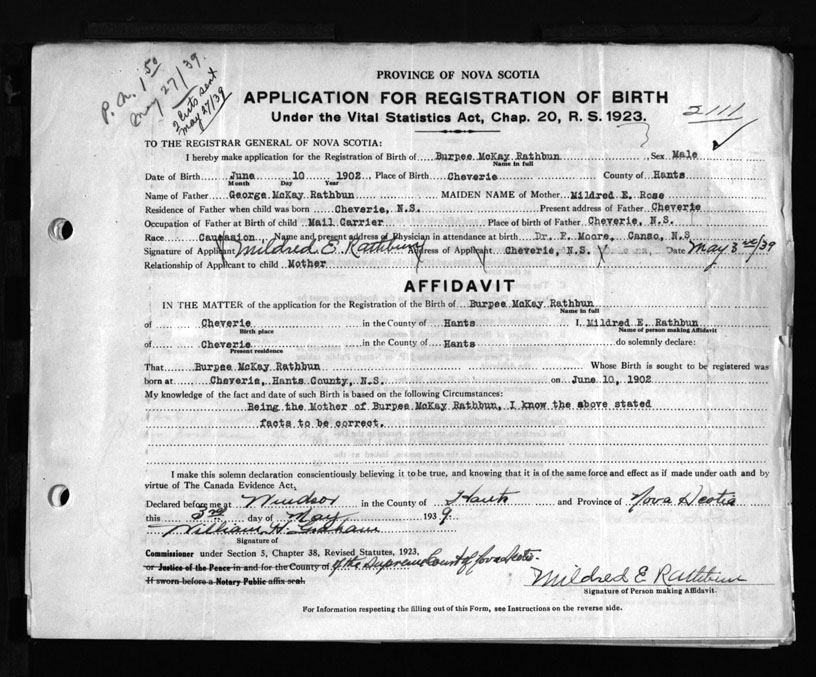 P.A. 1.50
May 27/39.
2 Certs sent
May 27/39
PROVINCE OF NOVA SCOTIA
APPLICATION FOR REGISTRATION OF BIRTH
Under the Vital Statistics Act, Chap. 20, R. S. 1923.
2111
TO THE REGISTRAR GENERAL OF NOVA SCOTIA:
I hereby make application for the Registration of Birth of Burpee McKay Rathbun, Sex Male
Name in full
Date of Birth June 10 1902 Place of Birth Cheverie County of Hants
Month Day Year
Name of Father George McKay Rathbun MAIDEN NAME of Mother Mildred E. Rose
Residence of Father when child was born Cheverie, N.S. Present address of Father Cheverie
Occupation of Father at Birth of child Mail Carrier Place of birth of Father Cheverie, N.S.
Race Caucasion Name and present address of Physician in attendance at birth Dr. F. Moore, Canso, N.S
Signature of Applicant Mildred E Rathbun Address of Applicant Cheverie, N.S. Date May 3rd/39
Relationship of Applicant to child Mother
AFFIDAVIT
IN THE MATTER of the application for the Registration of the Birth of Burpee McKay Rathbun
Name in full
of Cheverie in the County of Hants I, Mildred E. Rathbun
Birth place Name of person making Affidavit
of Cheverie in the County of Hants do solemnly declare:
Present residence
That Burpee McKay Rathbun Whose Birth is sought to be registered was
born at Cheverie, Hants County, N.S. on June 10, 1902
My knowledge of the fact and date of such Birth is based on the following Circumstances:
Being the Mother of Burpee McKay Rathbun, I know the above stated
facts to be correct.
I make this solemn declaration conscientiously believing it to be true, and knowing that it is of the same force and effect as if made under oath and by
virtue of The Canada Evidence Act,
Declared before me at Windsor in the County of Hants and Province of Nova Scotia
this 3rd day of May 1939.
William H. Graham
Signature of
Commissioner under Section 3, Chapter 38, Revised Statutes, 1923,
or Justice of the Peace in and for the County of of the Supreme Court of Nova Scotia.
If sworn before a Notary Public affix seal.
Mildred E Rathbun
Signature of Person making Affidavit.
For Information respecting the filling out of this Form, see Instructions on the reverse side.